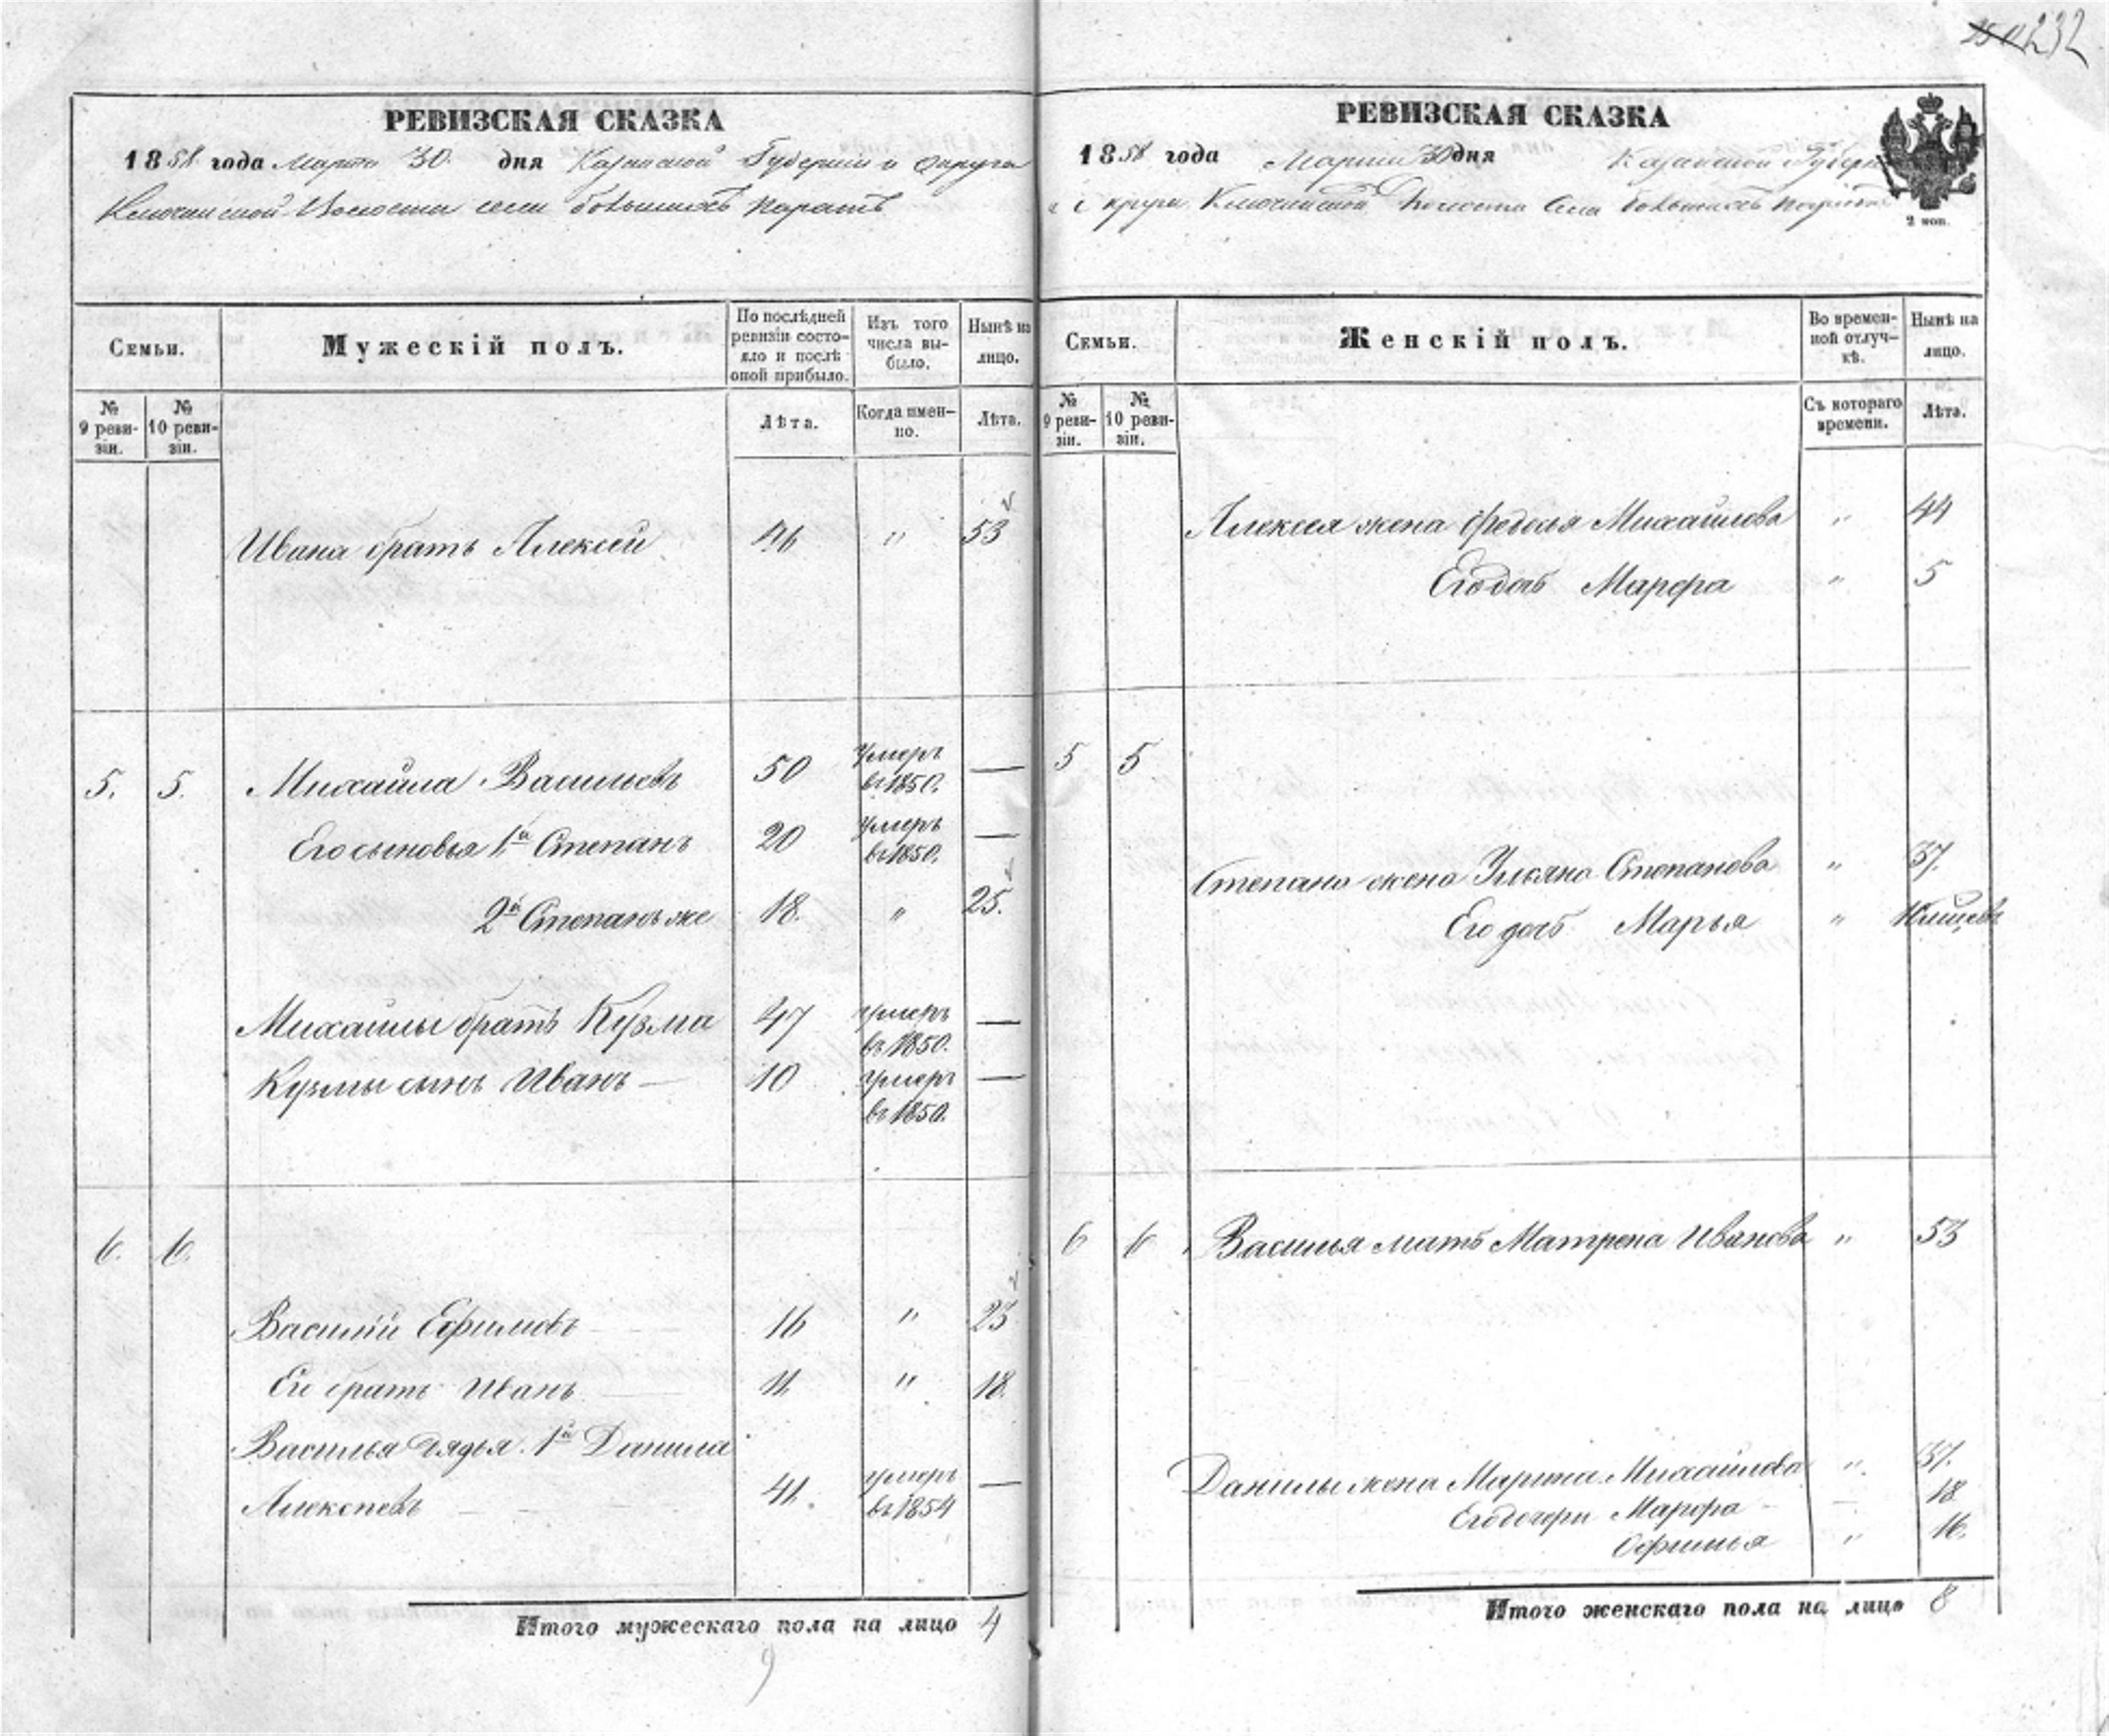 232
РЕВИЗСКАЯ СКАЗКА
1858 года Марта 30 дня Казанской Губернии и Округа
Ключинской Волости села большихъ Паратъ
Семьи.
Мужескій полъ.
По послѣдней ревизіи состояло и послѣ оной прибыло.
Изъ того числа выбыло.
Нынѣ на лицо.
№ 9 ревизіи.
№ 10 ревизіи.
Лѣта.
Когда именно.
Лѣта.
Ивана братъ Алексей 46 " 53
5. 5. Михайла Васильевъ 50 умеръ въ 1850. —
Его сыновья 1й Степанъ 20 умеръ въ 1850. —
2й Степанъ же 18. " 25.
Михайлы братъ Кузма 47 умеръ въ 1850. —
Кузмы сынъ Иванъ — 10 умеръ въ 1850. —
6. 6.
Василій Ефимовъ 16 " 23
Его братъ Иванъ 11 " 18.
Василья дядья 1й Данила
Алексеевъ 41. умеръ въ 1854 —
Итого мужескаго пола на лицо 4
9
РЕВИЗСКАЯ СКАЗКА
1858 года Марта 30 дня Казанской Губерн
и Округа Ключинской Волости Села большихъ
2 коп.
Семьи.
Женскій полъ.
Во временной отлучкѣ.
Нынѣ на лицо.
№ 9 ревизіи.
№ 10 ревизіи.
Съ котораго времени.
Лѣта.
Алексея жена Федосья Михайлова " 44
Его дочь Марфа " 5
5 5
Степана жена Ульяна Степанова " 37.
Его дочь Марья "
6 6 Василья мать Матрена Иванова " 53
Данилы жена Марина Михайлова " 37.
Его дочери Марфа — 18
Офимья " 16.
Итого женскаго пола на лицо 8